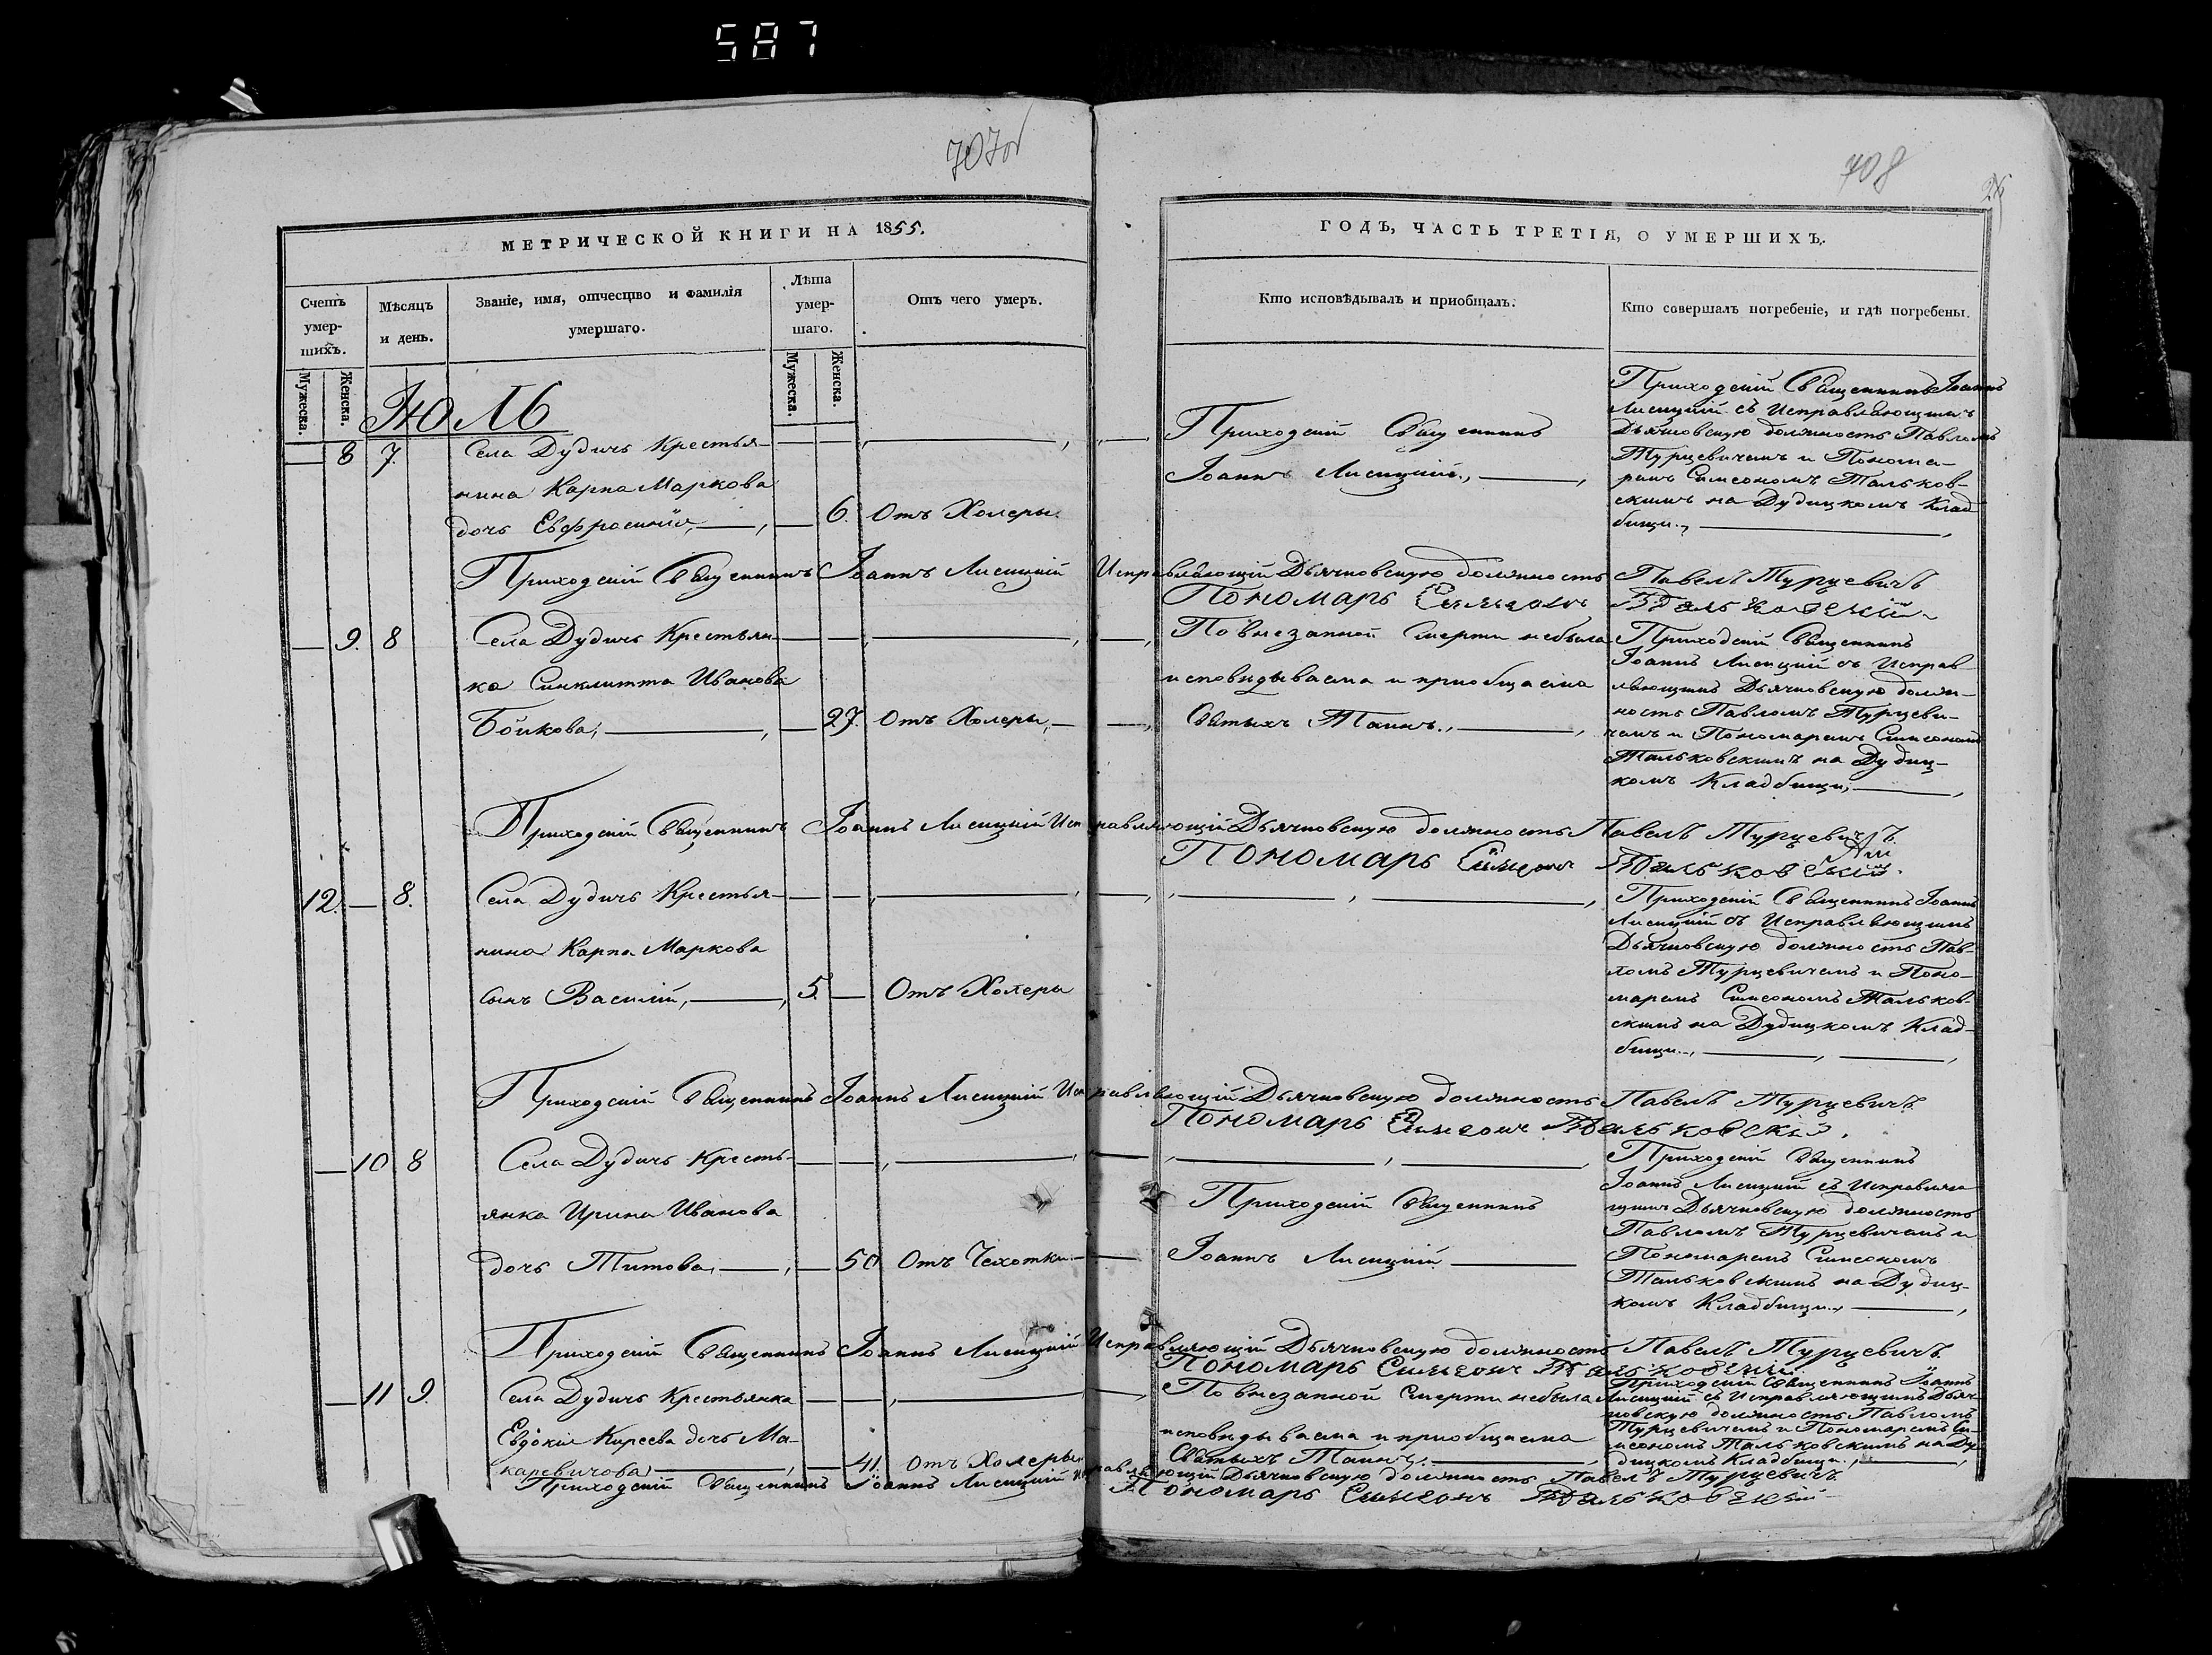 587
707об
708
26
МЕТРИЧЕСКОЙ КНИГИ НА 1855.
ГОДЪ, ЧАСТЬ ТРЕТІЯ, О УМЕРШИХЪ.
Счетъ умер-шихъ.
Мѣсяцъ и день.
Званіе, имя, отчество и фамилія умершаго.
Лѣта умер-шаго.
Отъ чего умеръ.
Кто исповѣдывалъ и приобщалъ.
Кто совершалъ погребеніе, и гдѣ погребены.
Мужеска.
Женска.
Мужеска.
Женска.
Июль
8 7.
Села Дудичь Крестья-
нина Карпа Маркова
дочь Евфросинія,
6. Отъ Холеры.
Приходскій Священникъ
Іоаннъ Лисицкій.,
Приходскій Священникъ Іоаннъ
Лисицкій съ Исправляющимъ
Дьячковскую должность Павломъ
Турцевичемъ и Понома-
ремъ Симеономъ Тальков-
скимъ на Дудицкомъ Клад
бищи.,
Приходскій Священникъ Іоаннъ Лисицкій Исправляющій Дьячковскую должность Павелъ Турцевичъ
Пономарь Симеонъ Тальковскій
9. 8
Села Дудичь Крестьян-
ка Синклитта Иванова
Бойкова,
27. Отъ Холеры,
По внезапной Смерти небыла
исповидываема и приобщаема
Святыхъ Таинъ.,
Приходскій Священникъ
Іоаннъ Лисицкій съ Исправ
ляющимъ Дьячковскую долж-
ность Павломъ Турцеви-
чемъ и Пономаремъ Симеономъ
Тальковскимъ на Дудиц-
комъ Кладбищи,
Приходскій Священникъ Іоаннъ Лисицкій Исправляющій Дьячковскую должность Павелъ Турцевичъ.
Пономарь Симеонъ Тальковскій.
12. 8.
Села Дудичь Крестья-
нина Карпа Маркова
сынъ Василій,
5. Отъ Холеры
Приходскій Священникъ Іоаннъ
Лисицкій съ Исправляющимъ
Дьячковскую должность Пав-
ломъ Турцевичемъ и Поно-
маремъ Симеономъ Тальков-
скимъ на Дудицкомъ Клад-
бищи.,
Приходскій Священникъ Іоаннъ Лисицкій Исправляющій Дьячковскую должность Павелъ Турцевичъ.
Пономарь Симеонъ Тальковскій.
10 8
Села Дудичь Кресть-
янка Ирина Иванова
дочь Титова,
50 Отъ Чехотки
Приходскій Священникъ
Іоаннъ Лисицкій
Приходскій Священникъ
Іоаннъ Лисицкій съ Исправляю
щимъ Дьячковскую должность
Павломъ Турцевичемъ и
Пономаремъ Симеономъ
Тальковскимъ на Дудиц-
комъ Кладбищи.,
Приходскій Священникъ Іоаннъ Лисицкій Исправляющій Дьячковскую должность Павелъ Турцевичъ.
Пономарь Симеонъ Тальковскій
11 9.
Села Дудичь Крестьянка
Евдокія Киреева дочь Ма-
каревичова
41. Отъ Холеры
По внезапной Смерти небыла
исповидываема и приобщаема
Святыхъ Таинъ.
Приходскій Священникъ Іоаннъ
Лисицкій съ Исправляющимъ Дьяч
ковскую должность Павломъ
Турцевичемъ и Пономаремъ Си-
меономъ Тальковскимъ на Ду
дицкомъ Кладбищи.,
Приходскій Священникъ Іоаннъ Лисицкій Исправляющій Дьячковскую должность Павелъ Турцевичъ
Пономарь Симеонъ Тальковскій